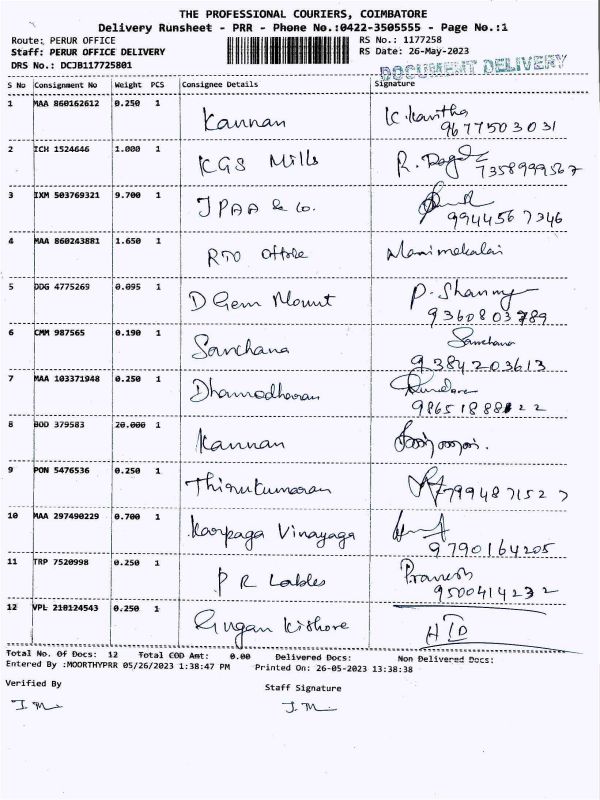 THE PROFESSIONAL COURIERS, COIMBATORE
Delivery Runsheet - PRR - Phone No.:0422-3505555 - Page No.:1
Route: PERUR OFFICE RS No.: 1177258
Staff: PERUR OFFICE DELIVERY RS Date: 26-May-2023
DRS No.: DCJB117725801 DOCUMENT DELIVERY
S No Consignment No Weight PCS Consignee Details Signature
1 MAA 860162612 0.250 1 Kannan K. Kavitha
9677503031
2 ICH 1524646 1.000 1 KGS Mills R.
7358999567
3 IXM 503769321 9.700 1 JPAA & Co.
9944567346
4 MAA 860243881 1.650 1 RTO Office Manimekalai
5 DDG 4775269 0.095 1 D Gem Mount P. Shanmu
9360803789
6 CMM 987565 0.190 1 Sanchana Sanchana
9384203613
7 MAA 103371948 0.250 1 Dhamodharan
8 BOD 379583 20.000 1 Kannan
9 PON 5476536 0.250 1 Thirukumaran 7994871527
10 MAA 297490229 0.700 1 Karpaga Vinayaga
9790164205
11 TRP 7520998 0.250 1 P R Lables Pranesh
9500414232
12 VPL 210124543 0.250 1 Gugan Kishore HTD
Total No. Of Docs: 12 Total COD Amt: 0.00 Delivered Docs: Non Delivered Docs:
Entered By :MOORTHYPRR 05/26/2023 1:38:47 PM Printed On: 26-05-2023 13:38:38
Verified By Staff Signature